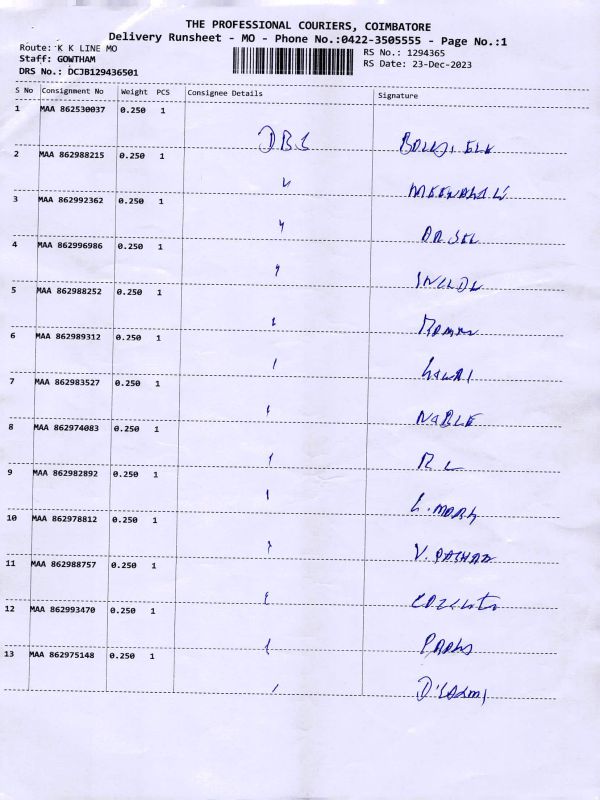 THE PROFESSIONAL COURIERS, COIMBATORE
Delivery Runsheet - MO - Phone No.:0422-3505555 - Page No.:1
Route: K K LINE MO
RS No.: 1294365
Staff: GOWTHAM
RS Date: 23-Dec-2023
DRS No.: DCJB129436501
S No Consignment No Weight PCS Consignee Details Signature
1 MAA 862530037 0.250 1
DBS
2 MAA 862988215 0.250 1
3 MAA 862992362 0.250 1
4 MAA 862996986 0.250 1
5 MAA 862988252 0.250 1
6 MAA 862989312 0.250 1
7 MAA 862983527 0.250 1
NABLE
8 MAA 862974083 0.250 1
9 MAA 862982892 0.250 1
10 MAA 862978812 0.250 1
11 MAA 862988757 0.250 1
12 MAA 862993470 0.250 1
13 MAA 862975148 0.250 1